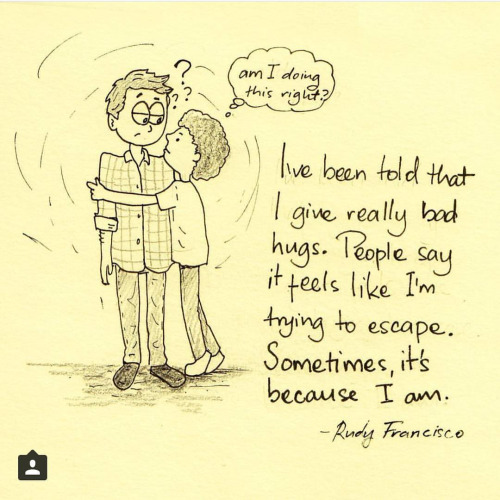 ?
? ?
am I doing
this right?
I've been told that
I give really bad
hugs. People say
it feels like I'm
trying to escape.
Sometimes, it's
because I am.
- Rudy Francisco